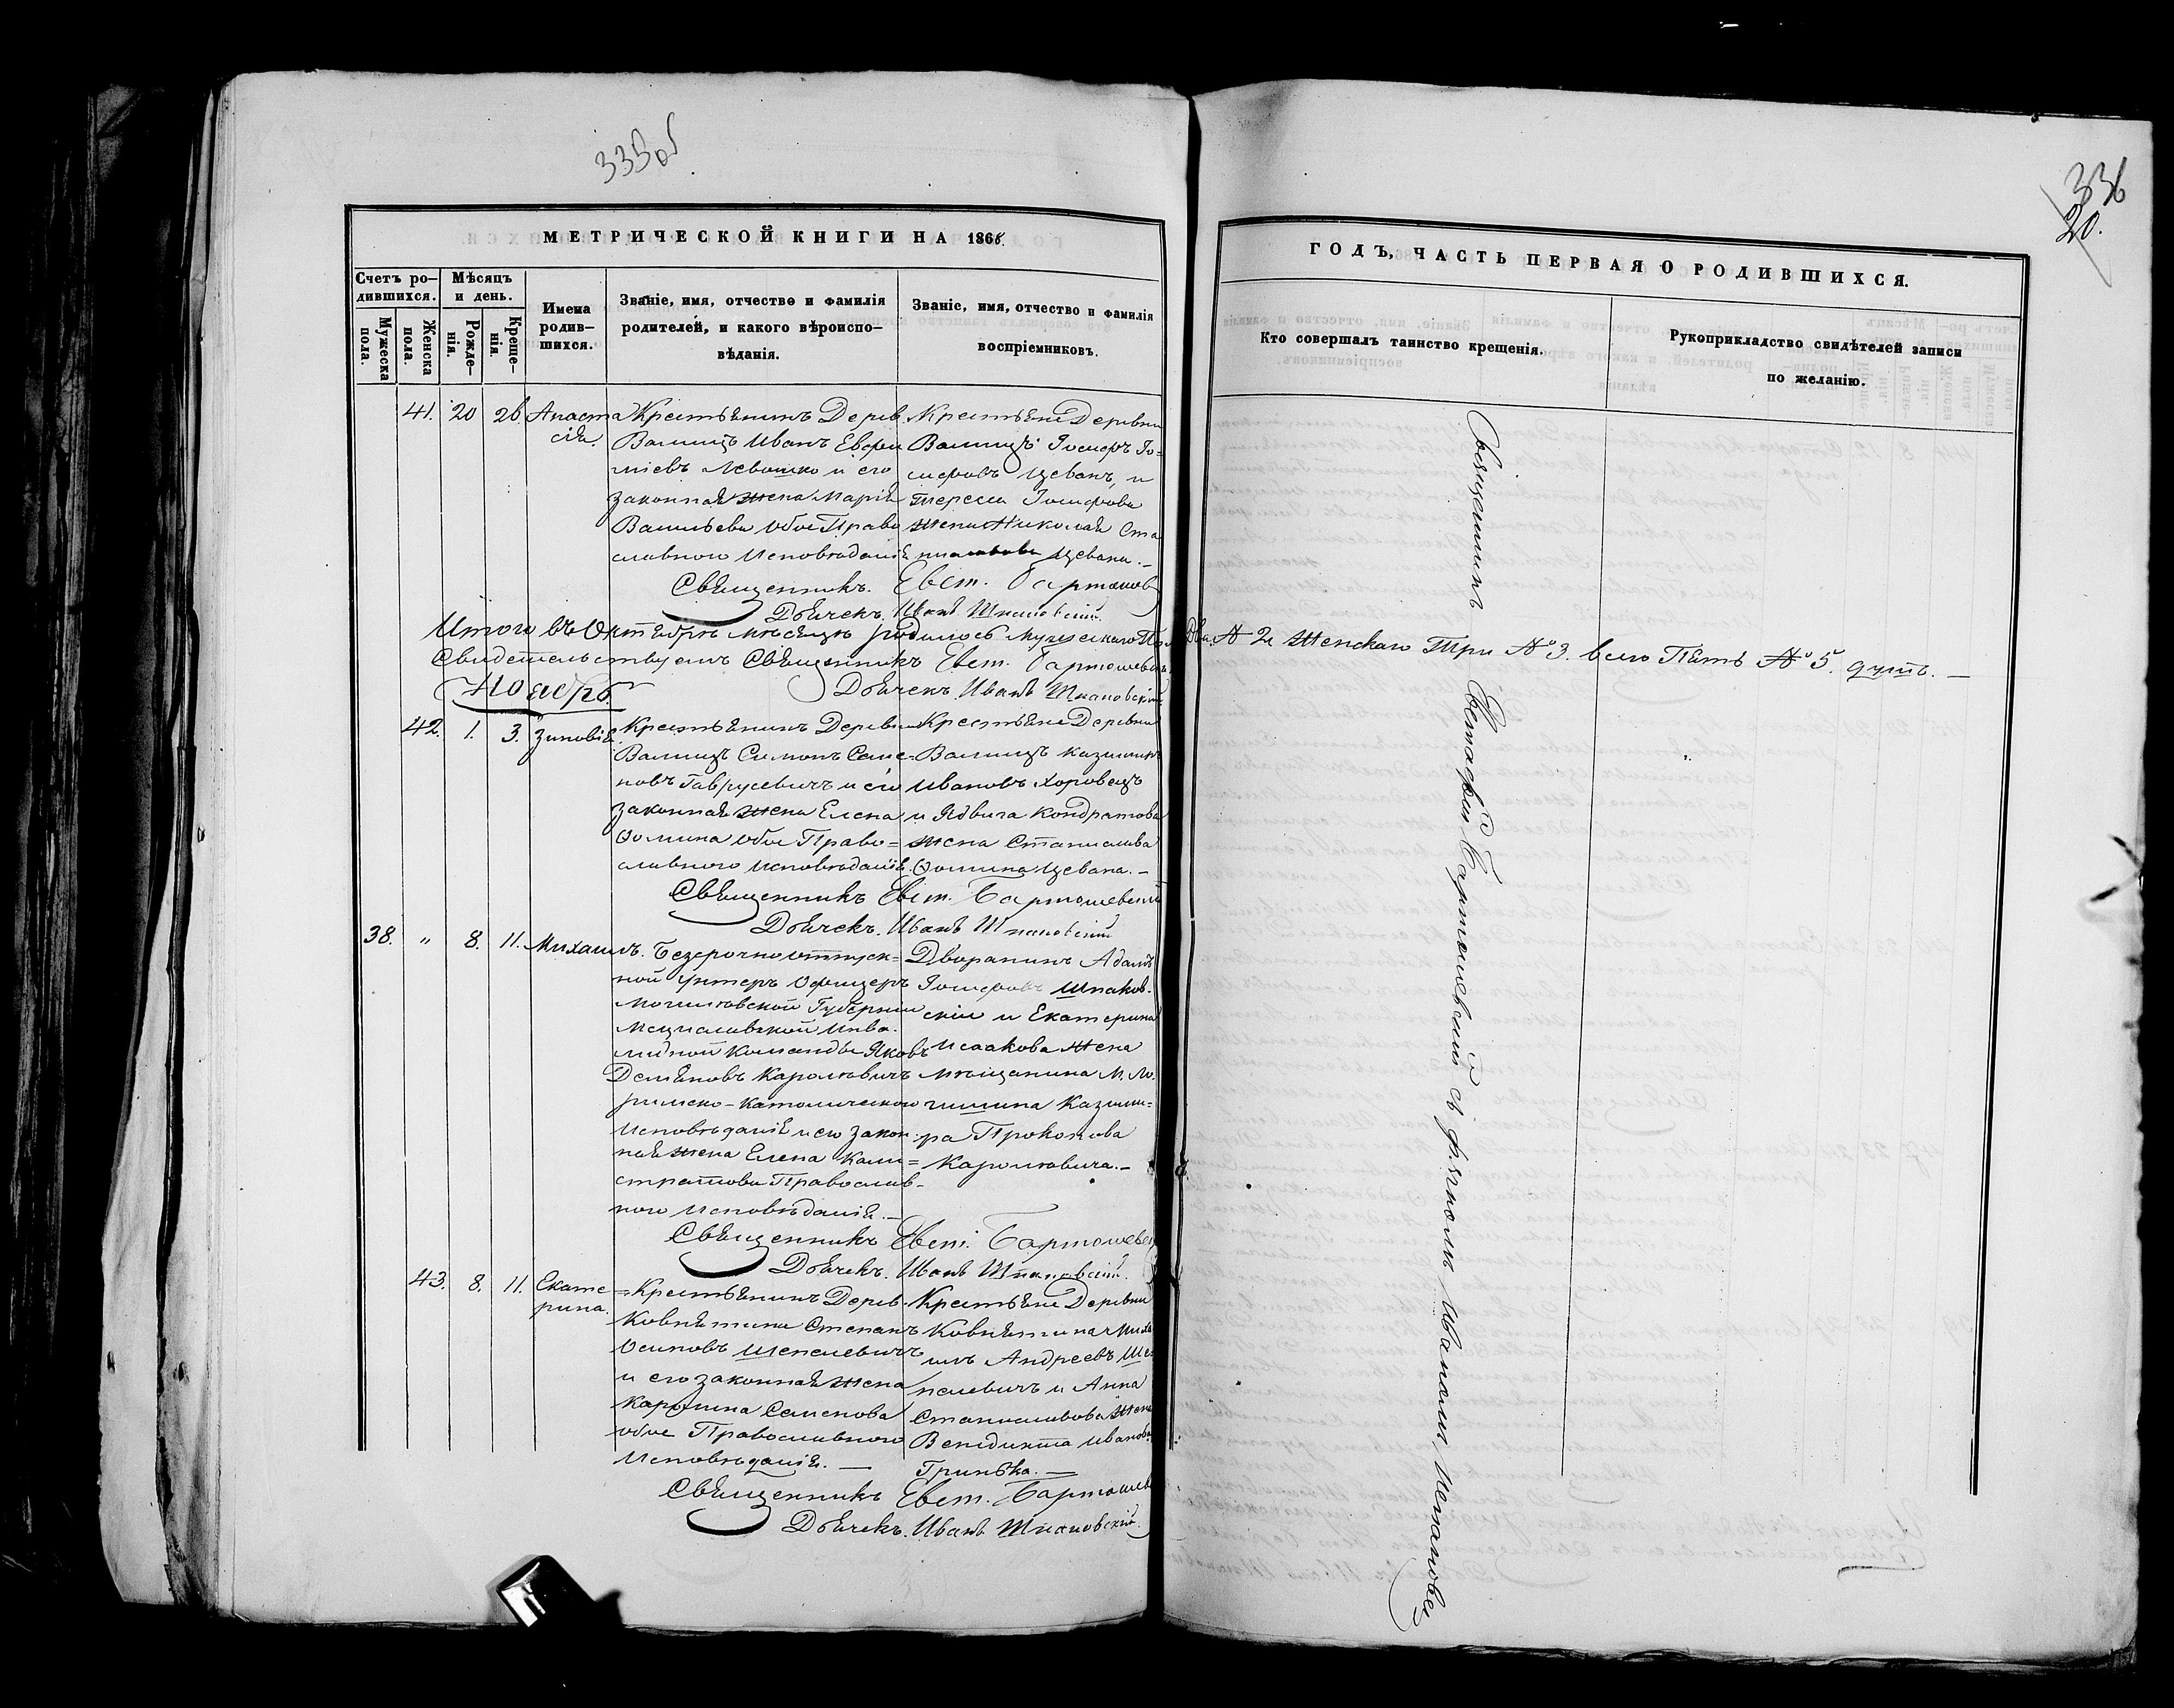 335об
МЕТРИЧЕСКОЙ КНИГИ НА 186
Счетъ ро-
дившихся.
Мужеска
пола.
Женска
пола.
Мѣсяцъ
и день.
Рожде-
нія.
Креще-
нія.
Имена
родив-
шихся.
Званіе, имя, отчество и фамилія
родителей, и какого вѣроиспо-
вѣданія.
Званіе, имя, отчество и фамилія
воспріемниковъ.
41. 20 26. Анаста
сія.
Крестьянинъ Дерев
Валищъ Иванъ Евфи
міевъ Левошко и его
законная жена Марія
Васильева обое Право
славного Исповѣданія
Крестьяне Деревни
Валищъ Іосифъ Іо=
сифовъ Цеванъ, и
Тереса Іосифова
жена Николая Ста
Цевана.—
Священникъ. Евст. Бартошев
Дьячекъ. Иванъ Шпаковскій
Итого въ Октябрѣ мѣсяцѣ родилось мужескаго
Свидетельствуемъ Священникъ Евст. Бартошевск
Дьячекъ Иванъ Шпаковскій
Ноябрь
42. 1. 3. Зиновія.
Крестьянинъ Деревни
Валищъ Симонъ Семе=
новъ Гаврусевичъ и его
законная жена Елена
Ѳомина обое Право=
славного исповѣданія.
Крестьяне Деревни
Валищъ Казимиръ
Ивановъ Хоровецъ
и Ядвига Кондратова
жена Станислава
Ѳомина Цевана.—
Священникъ Евст. Бартошевскій
Дьячекъ. Иванъ Шпаковскій
38. „ 8. 11. Михаилъ.
Безсрочноотпуск=
ной Унтеръ Офицеръ
Могилевской Губерніи
Мстиславской Инва
лидной Команды Яковъ
Демьяновъ Каролевичъ
римско-католическаго
Исповѣданія и его закон
ная жена Елена Кали=
стратова Православ-
ного Исповѣданія.—
Дворянинъ Адамъ
Іосифовъ Шпаков-
скій и Екатерина
Исаакова жена
мѣщанина М. Ло.
гишина Казими=
ра Прокопова
Каролевича.—
Священникъ Евст. Бартошевск
Дьячекъ. Иванъ Шпаковскій.
43. 8. 11. Екате=
рина.
Крестьянинъ Дерев
Ковнятина Степанъ
Осиповъ Шепелевичъ
и его законная жена
Каролина Семенова
обое Православного
Исповѣданія.—
Крестьяне Деревни
Ковнятина Миха
илъ Андреевъ Ше
пелевичъ и Анна
Станиславова жена
Венедикта Иванова
Гринька.—
Священникъ Евст. Бартошев
Дьячекъ. Иванъ Шпаковскій.
336
20.
ГОДЪ, ЧАСТЬ ПЕРВАЯ О РОДИВШИХСЯ.
Кто совершалъ таинство крещенія.
Рукоприкладство свидѣтелей записи
по желанію.
№ 2 и женскаго Три № 3. всего Пять № 5. душъ.—
Священникъ Евстафій Бартошевскій съ дьячкомъ Иваномъ Шпаковск